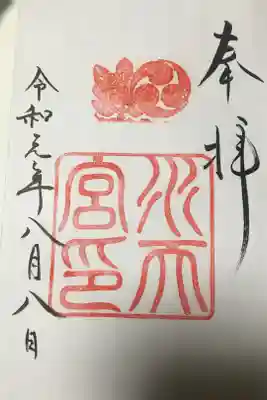 奉拝
水天宮印
令和元年八月八日